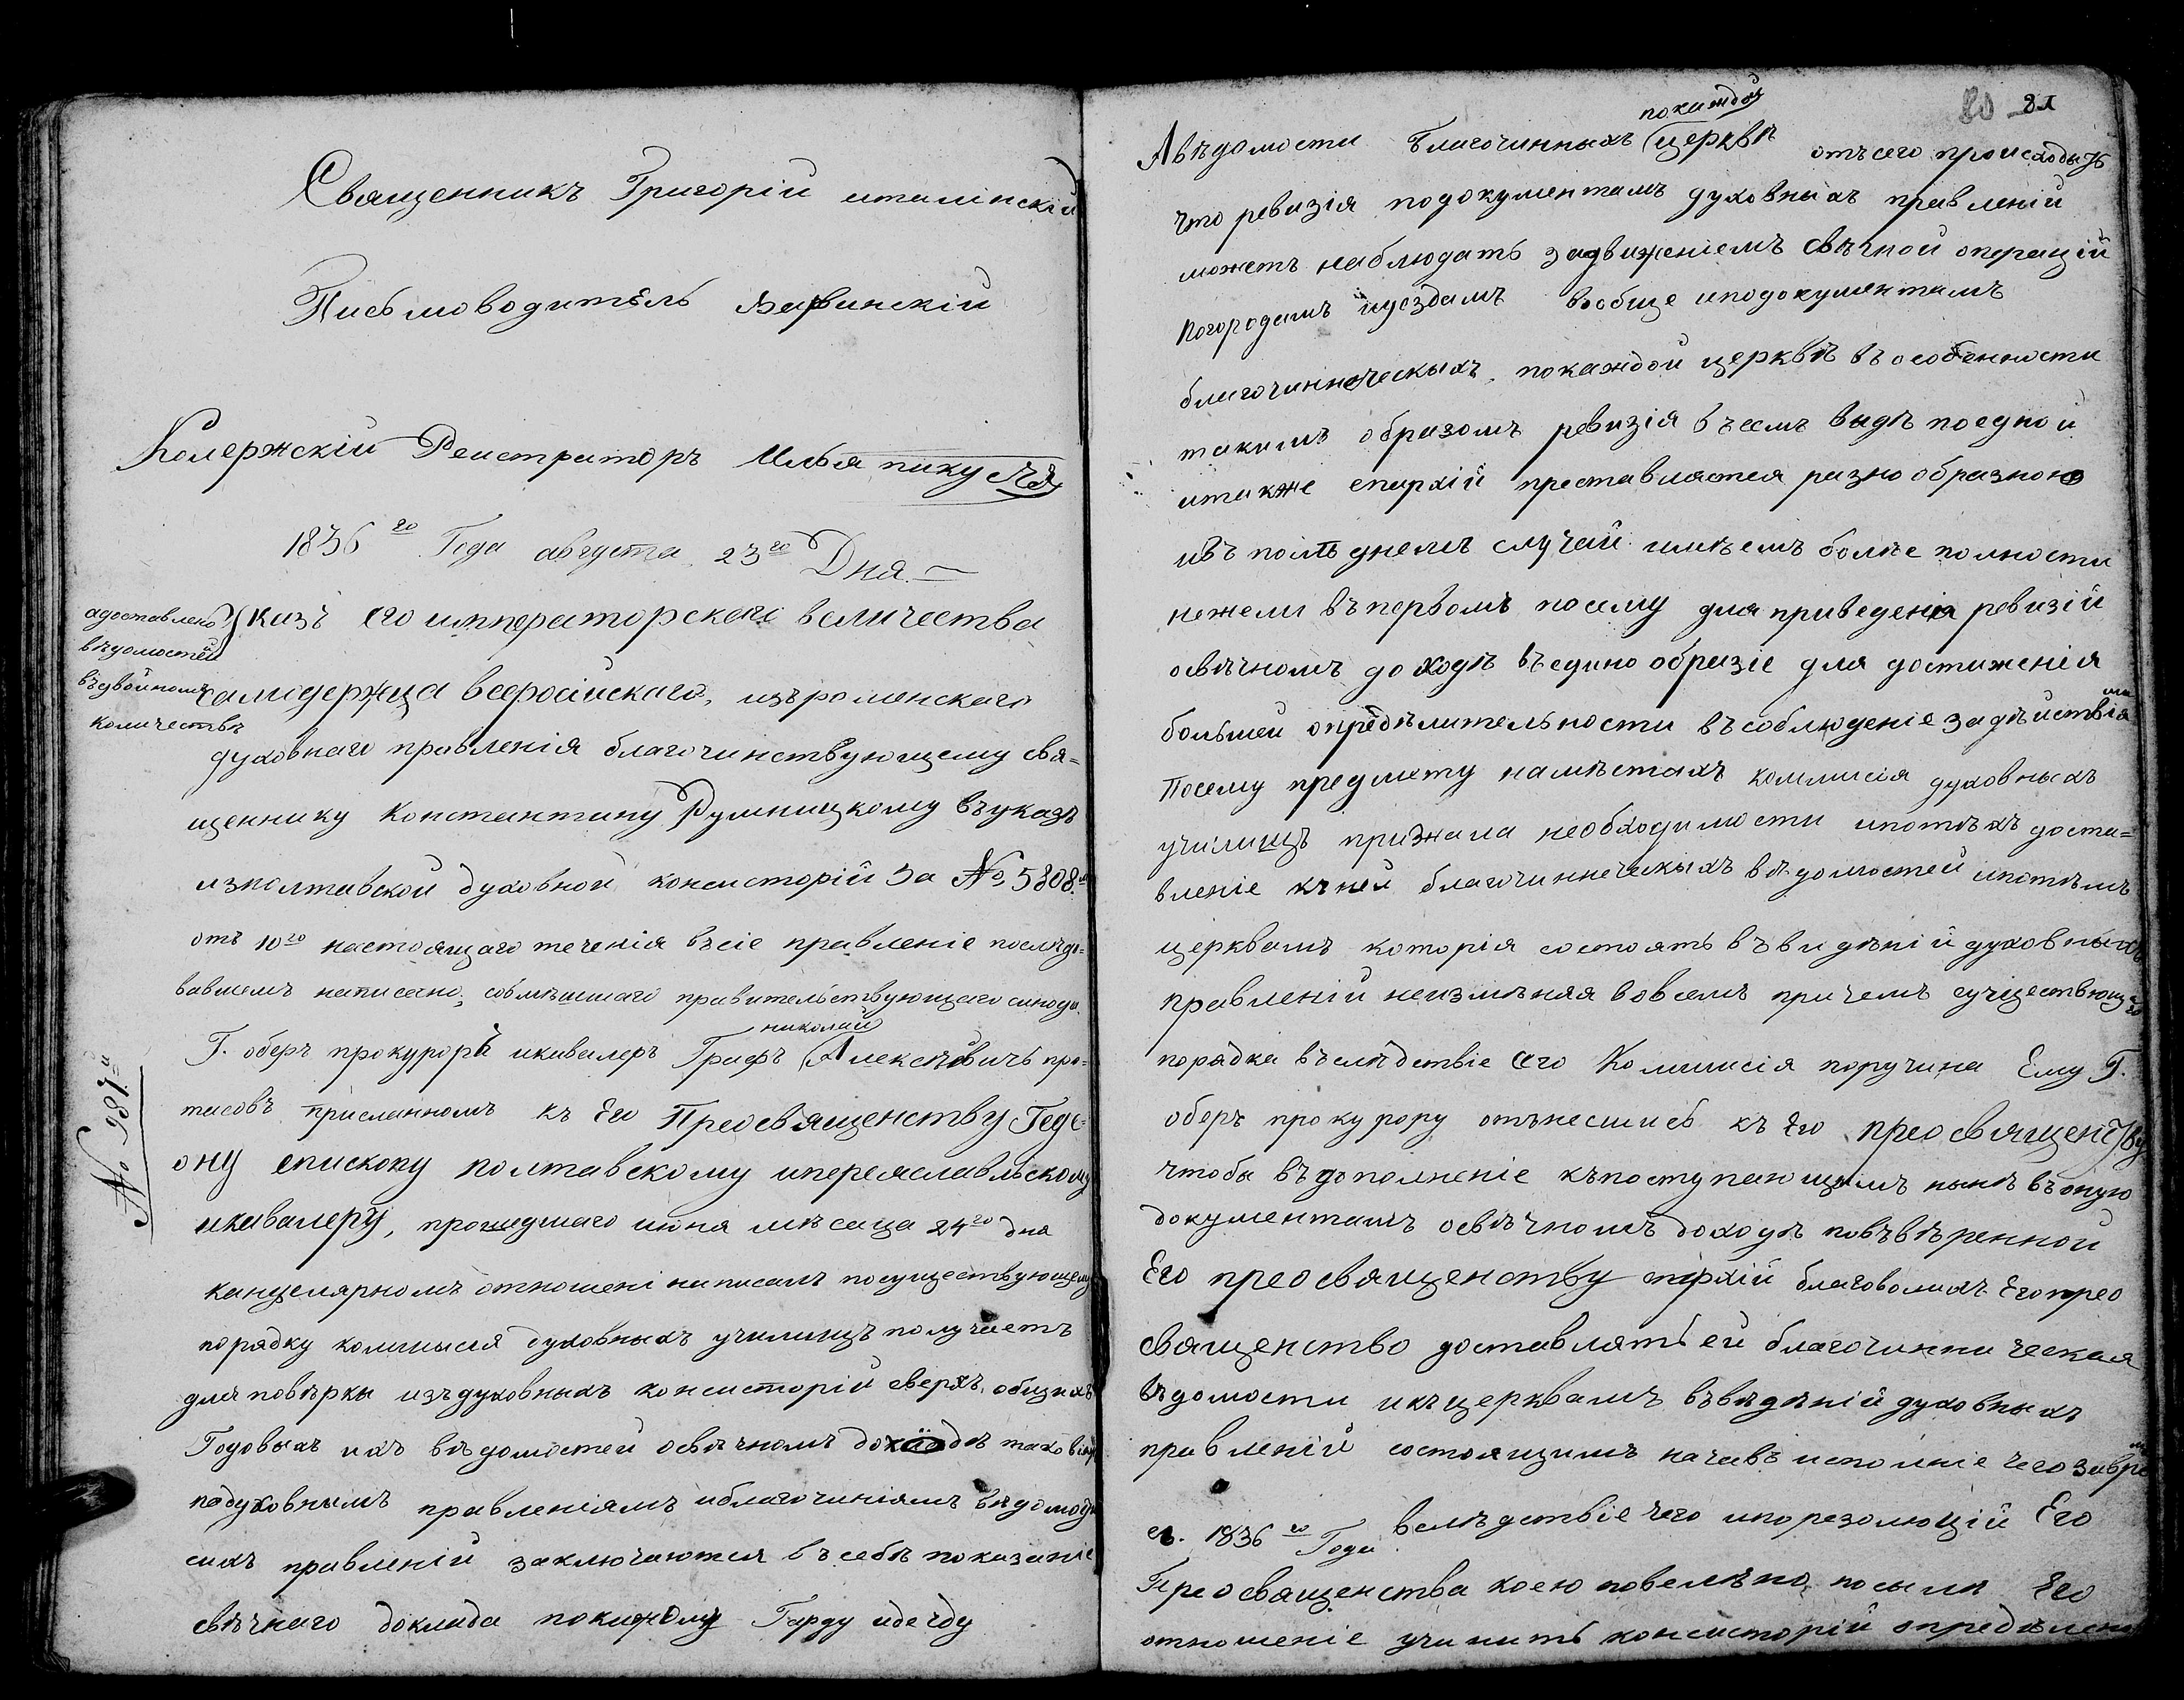 Священникъ Григорій
Письмоводитель
Колержскій Реистраторъ Илья
1836го Года августа 23го Дня.
адоставлено
вѣдомостей
въдвойномъ
количествѣ
Указъ его императорскаго величества
самодержца всеросійскаго, изъроменскаго
духовнаго провленія благочинствующему свя=
щеннику Константину Румницкому въуказѣ
изполтавской духовной консисторій За № 5808м
отъ 10го настоящаго теченія въсіе правленіе послѣдо=
вавшемъ написано; правительствующаго синода
николай
Г. оберъ прокуроръ икавалеръ Графъ Алексѣевичь про=
тасовъ присланномъ къ Его Преосвященству Геде=
ону епископу полтавскому ипереяславльскому
икавалеру, прошедшаго июня мѣсаца 24го дня
канцелярномъ отношені написалъ посуществующему
порядку коммысия духовныхъ училищъ получаетъ
для повѣрки изъдуховныхъ консисторій сверхъ общихъ
Годовыхъ ихъ вѣдомостей освѣчномъ доходѣ
подуховнымъ правленіямъ иблагочиніямъ
сихъ правленій заключаются въсебѣ показаніе
свѣчнаго доклада покаждому
№ 987й
80 81
покаждой
Авѣдомости Благочинныхъ церквѣ отъсего происходыть
что ревизія подокументамъ духовныхъ правленій
можетъ наблюдать задвиженіемъ свѣчной операцій
погородамъ иуездамъ вообще иподокументамъ
благочинническыхъ, покаждой церквѣ въособенности
такимъ образомъ ревизія въсемъ выдѣ поедной
итакже епархій преставляется разнообразною
ивъ случаи имѣемъ болѣе полности
нежели въпервомъ посему для приведенія ревизій
освѣчномъ доходѣ въедино образіе для достиженія
большей опредѣлительности въсоблюденіе задѣйствіями
Посему предмету намѣстахъ коммисія духовныхъ
училищъ признала необходимости ипотѣхъ доста=
вленіе къней благочинническыхъ вѣдомостей ипотѣмъ
церквамъ которія состоять въвидѣній духовныхъ
правленій неизмѣняя вовсемъ причемъ существующаго
порядка въслѣдствіе сего Коммисія поручила Ему Г.
оберъ прокурору отънесшись къ Его преосвященству
чтобы въдополненіе къпоступающимъ нынѣ въоную
документамъ освѣчномъ доходѣ повъвѣренной
Его преосвященству епрхій благоволилъ Егопрео
священство доставлять ей благочинническая
вѣдомости икъцерквамъ въвѣдѣній духовныхъ
правленій состоящимъ начавъ исполніе
съ. 1836го Года велѣдствіе чего ипорезолюцій Его
Преосвященства коею повелѣно посылѣ Его
отношеніе учинить консисторіи опредѣлені